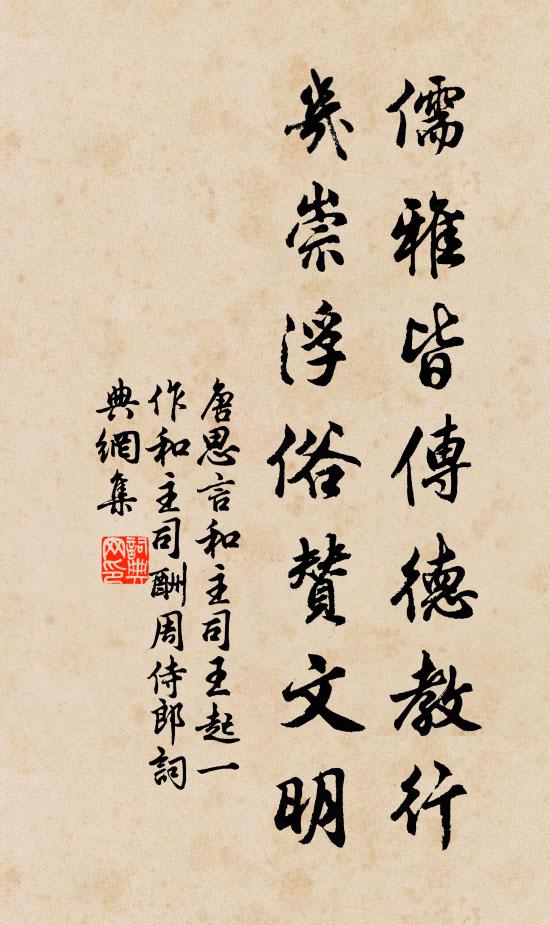 儒雅皆傳德教行
幾崇浮俗贊文明
唐思言和主司王起一
作和主司酬周侍郎詞
典網集
詞典
网印